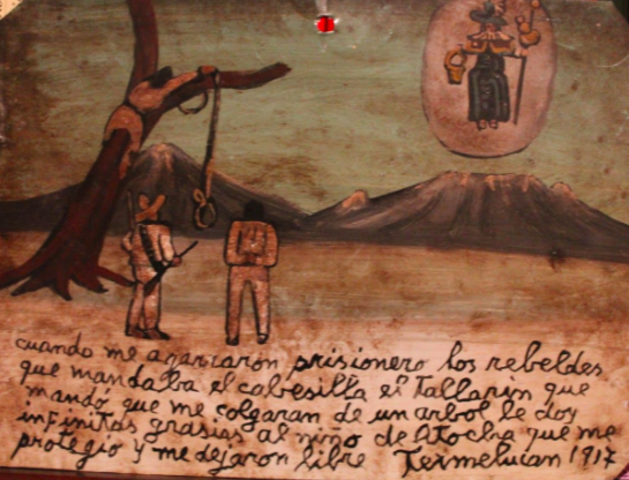 cuando me agarraron prisionero los rebeldes
que mandaba el cabesilla el Tallarin que
mando que me colgaran de un arbol le doy
infinitas grasias al niño de Atocha que me
protegio y me dejaron libre Texmelucan 1917